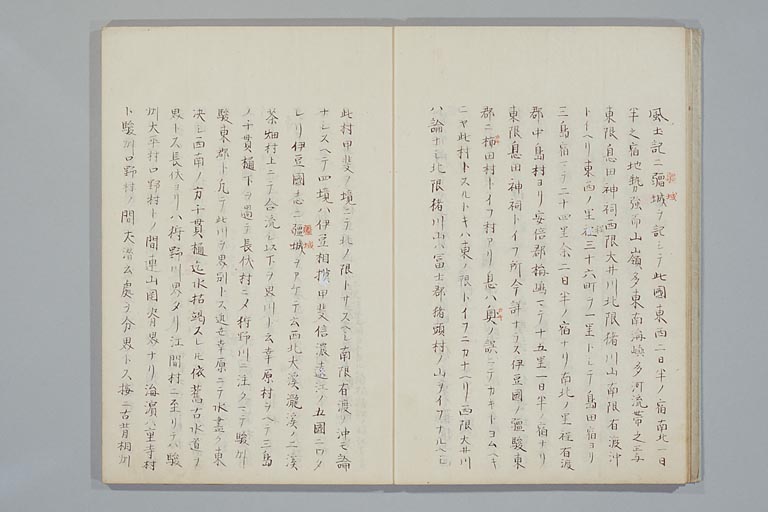 風土記ニ疆域ヲ記シテ此國東西二日半ノ宿南北一日
半之宿地勢強即山嶺多東南海嶼多河流帶之云々
東限息田神祠西限大井川北限猪川山南限有渡沖
トイヘリ東西ノ里程三十六町ヲ一里トシテ島田宿ヨリ
三島宿マテ二十四里余二日半ノ宿ナリ南北ノ里程有渡
郡中島村ヨリ安倍郡梅嶋マテ十五里一日半ノ宿ナリ
東限息田神祠トイフ所今詳ナラス伊豆國ノ疆駿東
郡ニ柿田村トイフ村アリ息ハ ノ誤ニテカキトヨムヘキ
ニヤ此村トスルトキハ東ノ限トイフニカナヘリ西限大井川
ハ論ナシ北限猪川山ハ冨士郡猪頭村ノ山ヲイフナルヘシ
疆域
此村甲斐ノ境ニテ北ノ限トサスヘシ南限有渡ノ沖モ論
ナシスヘテ四境ハ伊豆相摸甲斐信濃遠江ノ五國ニワタ
レリ伊豆國志ニ疆域ヲアケテ云西北大溪瀧溪ノ二溪
茶畑村上ニテ合流シ以下ヲ界川ト云幸原村ヲヘテ三島
ノ千貫樋下ヲ過テ長伏村ニメ狩野川ニ注クマテ駿州
駿東郡ト凢テ此川ヲ界別トス近世幸原ニテ水盡ク東
決シ西南ノ方千貫樋迄水枯竭スレ𪜈依舊古水道ヲ
界トス長伏ヨリハ狩野川界タリ江間村ニ至リテハ駿
州大平村口野村トノ間連山岡脊界ナリ海濵ハ重寺村
ト駿州口野村ノ間大潜ム處ヲ分界トス接ニ古昔相州
疆域